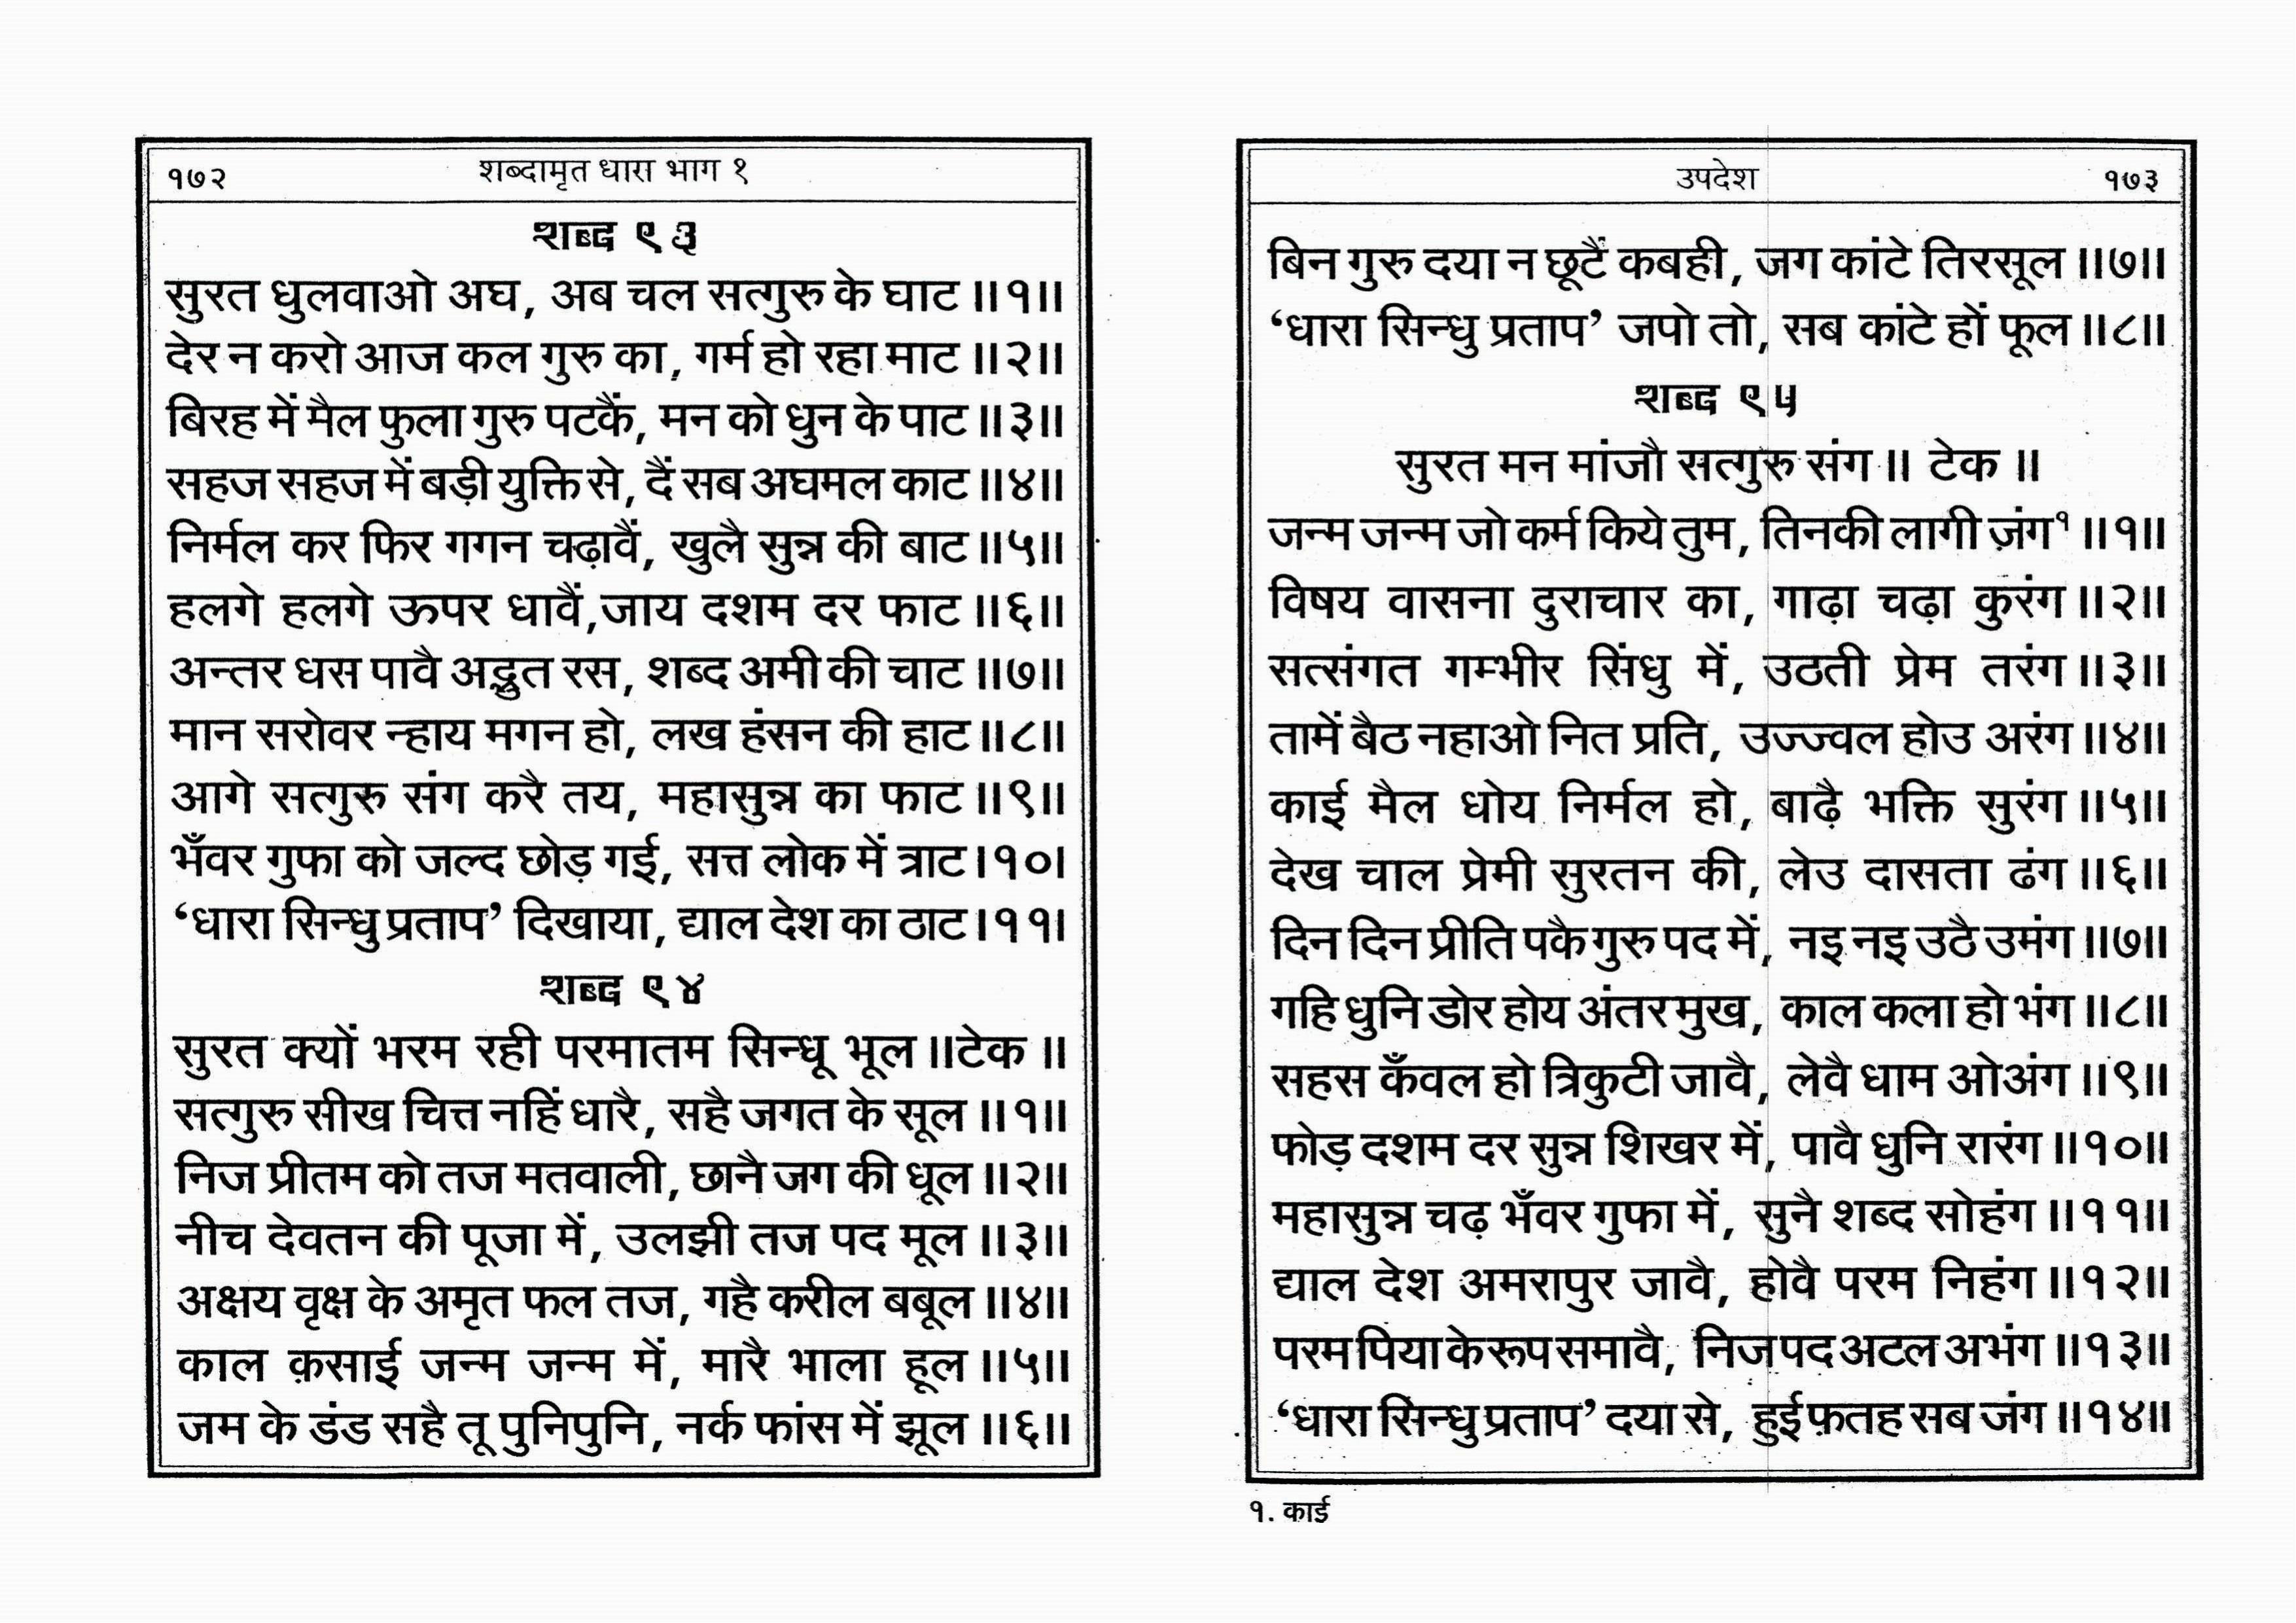 १७२ शब्दामृत धारा भाग १
शब्द ९३
सुरत धुलवाओ अघ, अब चल सत्गुरु के घाट ॥१॥
देर न करो आज कल गुरु का, गर्म हो रहा माट ॥२॥
बिरह में मैल फुला गुरु पटकैं, मन को धुन के पाट ॥३॥
सहज सहज में बड़ी युक्ति से, दैं सब अघमल काट ॥४॥
निर्मल कर फिर गगन चढ़ावैं, खुलै सुन्न की बाट ॥५॥
हलगे हलगे ऊपर धावैं,जाय दशम दर फाट ॥६॥
अन्तर धस पावै अद्भुत रस, शब्द अमी की चाट ॥७॥
मान सरोवर न्हाय मगन हो, लख हंसन की हाट ॥८॥
आगे सत्गुरु संग करै तय, महासुन्न का फाट ॥९॥
भँवर गुफा को जल्द छोड़ गई, सत्त लोक में त्राट ।१०।
‘धारा सिन्धु प्रताप’ दिखाया, द्याल देश का ठाट ।११।
शब्द ९४
सुरत क्यों भरम रही परमातम सिन्धू भूल ॥टेक ॥
सत्गुरु सीख चित्त नहिं धारै, सहै जगत के सूल ॥१॥
निज प्रीतम को तज मतवाली, छानै जग की धूल ॥२॥
नीच देवतन की पूजा में, उलझी तज पद मूल ॥३॥
अक्षय वृक्ष के अमृत फल तज, गहै करील बबूल ॥४॥
काल क़साई जन्म जन्म में, मारै भाला हूल ॥५॥
जम के डंड सहै तू पुनिपुनि, नर्क फांस में झूल ॥६॥
उपदेश १७३
बिन गुरु दया न छूटैं कबही, जग कांटे तिरसूल ॥७॥
‘धारा सिन्धु प्रताप’ जपो तो, सब कांटे हों फूल ॥८॥
शब्द ९५
सुरत मन मांजौ सत्गुरु संग ॥ टेक ॥
जन्म जन्म जो कर्म किये तुम, तिनकी लागी ज़ंग१ ॥१॥
विषय वासना दुराचार का, गाढ़ा चढ़ा कुरंग ॥२॥
सत्संगत गम्भीर सिंधु में, उठती प्रेम तरंग ॥३॥
तामें बैठ नहाओ नित प्रति, उज्ज्वल होउ अरंग ॥४॥
काई मैल धोय निर्मल हो, बाढ़ै भक्ति सुरंग ॥५॥
देख चाल प्रेमी सुरतन की, लेउ दासता ढंग ॥६॥
दिन दिन प्रीति पकै गुरु पद में, नइ नइ उठै उमंग ॥७॥
गहि धुनि डोर होय अंतरमुख, काल कला हो भंग ॥८॥
सहस कँवल हो त्रिकुटी जावै, लेवै धाम ओअंग ॥९॥
फोड़ दशम दर सुन्न शिखर में, पावै धुनि रारंग ॥१०॥
महासुन्न चढ़ भँवर गुफा में, सुनै शब्द सोहंग ॥११॥
द्याल देश अमरापुर जावै, होवै परम निहंग ॥१२॥
परम पिया के रूप समावै, निज पद अटल अभंग ॥१३॥
‘धारा सिन्धु प्रताप’ दया से, हुई फ़तह सब जंग ॥१४॥
१. काई